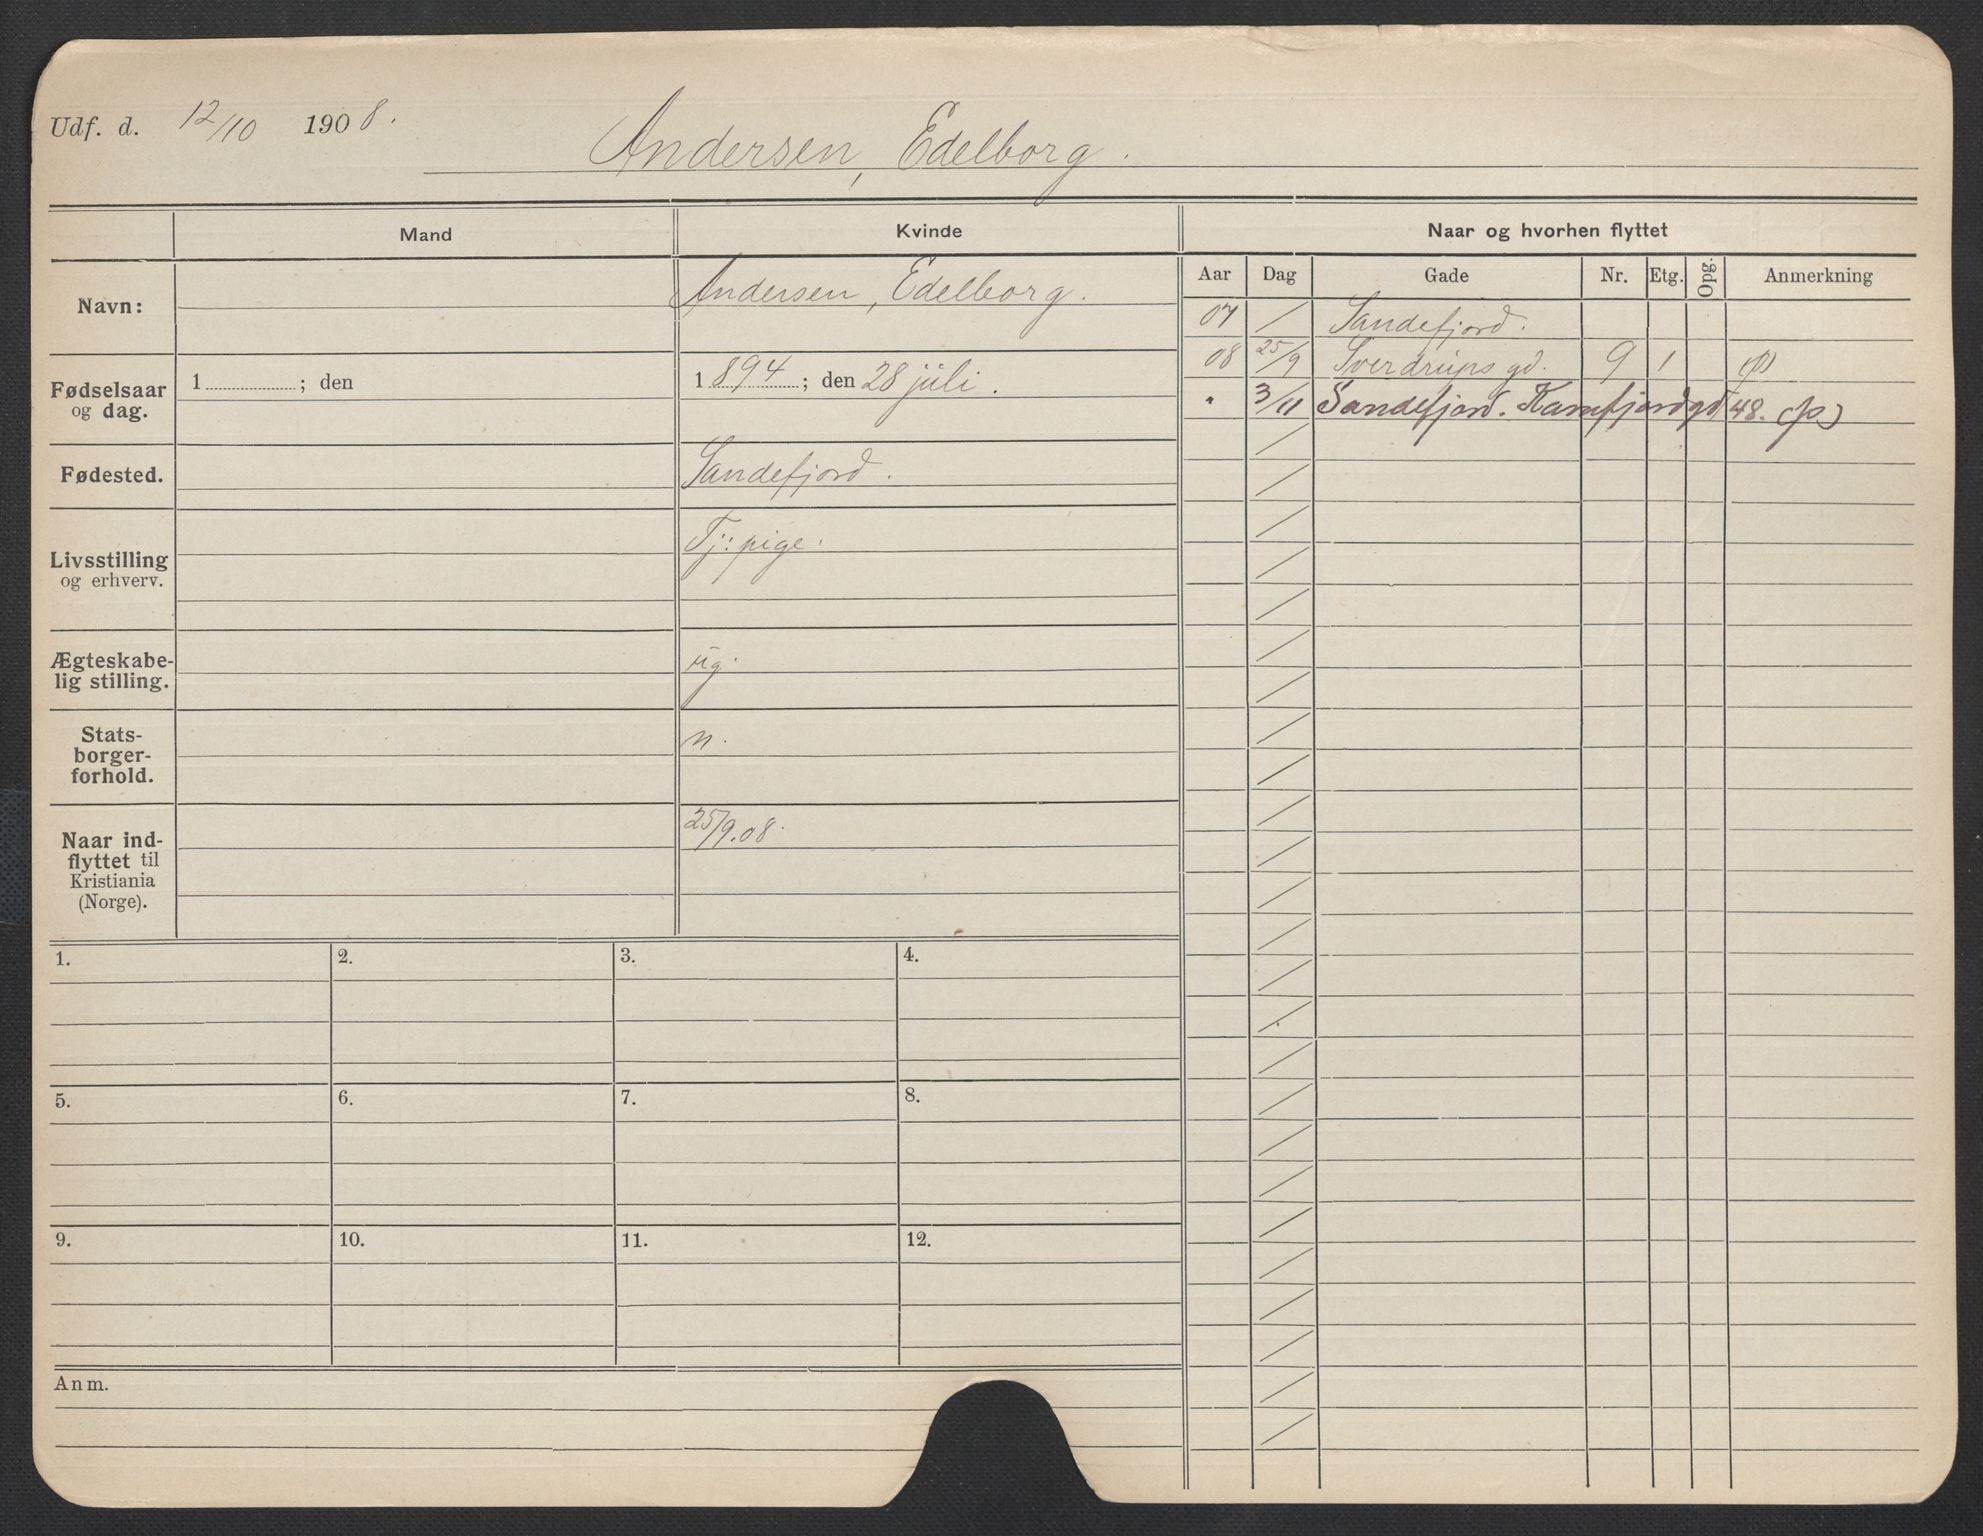 Udf. d. 12/10 1908.
Andersen, Edelborg.
Mand
Kvinde
Navn:
Andersen, Edelborg.
Fødselsaar
og dag.
1 ; den
1 894 ; den 28 júli.
Fødested.
Sandefjord.
Livsstilling
og erhverv.
Tj: pige.
Ægteskabe-
lig stilling.
ug.
Stats-
borger-
forhold.
n.
Naar ind-
flyttet til
Kristiania
(Norge).
25/9.08.
1. 2. 3. 4.
5. 6. 7. 8.
9. 10. 11. 12.
Anm.
Naar og hvorhen flyttet
Aar Dag Gade Nr. Etg. Opg. Anmerkning
07 / Sandefjord.
08 25/9 Sverdrups gd. 9 1 (p)
" 3/11 Sandefjord. Kamfjordgd 48. (p)